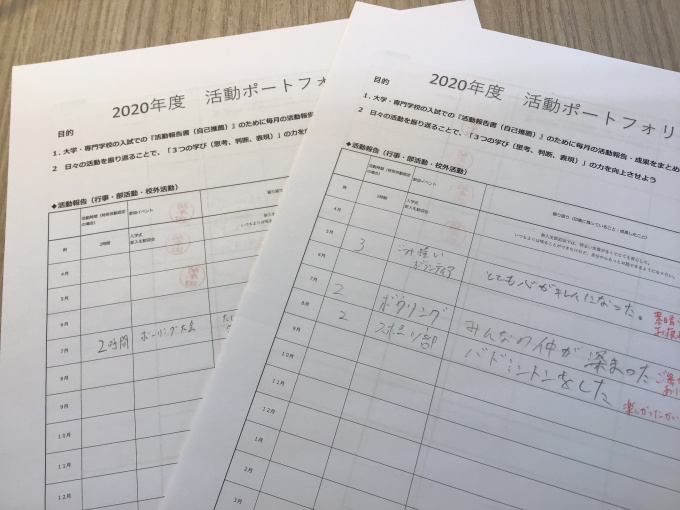 2020年度 活動ポートフォ
目的
1.大学・専門学校の入試での『活動報告書（自己推薦）』のために毎月の活動報
2 日々の活動を振り返ることで、「３つの学び（思考、判断、表現）」の力を向
◆活動報告（行事・部活動・校外活動）
参加イベント
例
2時間
入学式
新入生歓迎会
4月
5月
6月
7月
2時間
ボーリング大会
8月
9月
10月
11月
12月
2020年度 活動ポートフォリ
目的
1.大学・専門学校の入試での『活動報告書（自己推薦）』のために毎月の活動報告・成果をまとめ
2 日々の活動を振り返ることで、「３つの学び（思考、判断、表現）」の力を向上させよう
◆活動報告（行事・部活動・校外活動）
参加イベント
振り返り（印象に残っていること・成長したこと）
例
2時間
入学式
新入生歓迎会
4月
5月
6月
3
ゴミ拾い
ボランティア
とても心がキレイになった。
7月
2
ボウリング
みんなの仲が深まった
8月
2
スポーツ部
バドミントンをした
9月
10月
11月
12月
1月
2月
3月